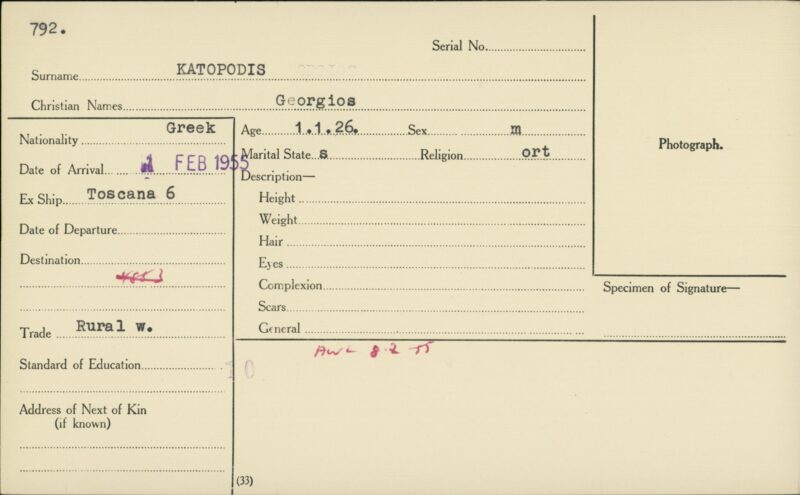 792.
Serial No.
Surname KATOPODIS
Christian Names Georgios
Nationality Greek
Date of Arrival 1 FEB 1955
Ex Ship Toscana 6
Date of Departure
Destination
4853
Trade Rural w.
Standard of Education
Address of Next of Kin
(if known)
Age 1.1.26. Sex m
Marital State s Religion ort
Description—
Height
Weight
Hair
Eyes
Complexion
Scars
General
AWL 8.2.55
10
(33)
Photograph.
Specimen of Signature—